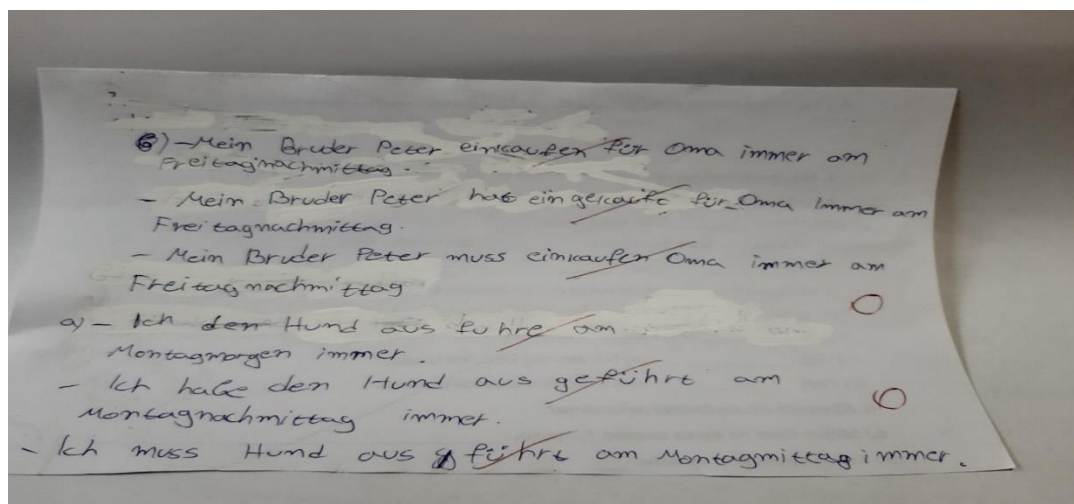 6) - Mein Bruder Peter einkaufen für Oma immer am
Freitagnachmittag.
- Mein Bruder Peter hat eingekauft für Oma Immer am
Freitagnachmittag.
- Mein Bruder Peter muss einkaufen Oma immer am
Freitagnachmittag
a) - Ich den Hund aus fuhre am
Montagmorgen immer.
- Ich habe den Hund aus geführt am
Montagnachmittag immer.
- Ich muss Hund aus führt am Montagmittag immer.